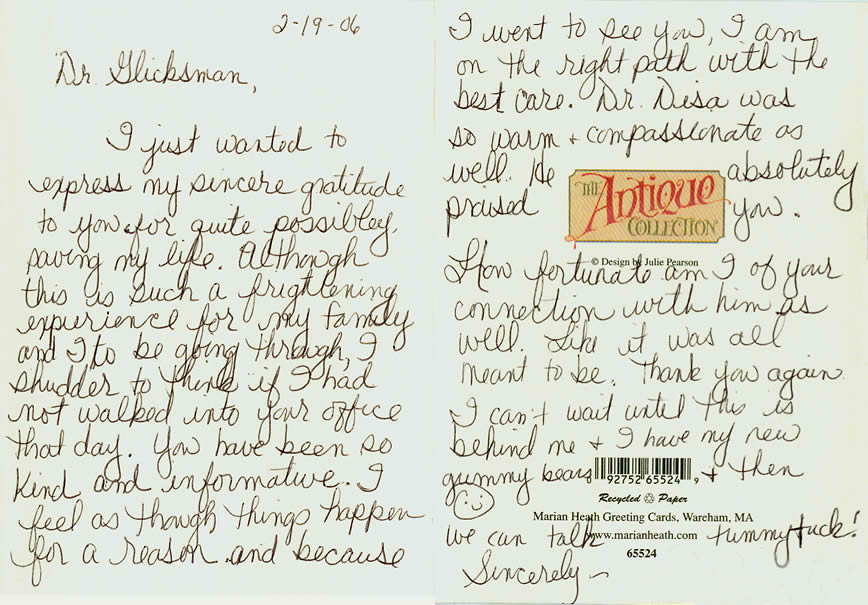 2-19-06
Dr. Glicksman,
I just wanted to
express my sincere gratitude
to you for quite possibley,
saving my life. Although
this is such a frightening
experience for my family
and I to be going through, I
shudder to think if I had
not walked into your office
that day. You have been so
kind and informative. I
feel as though things happen
for a reason and because
I went to see you, I am
on the right path with the
best care. Dr. Disa was
so warm + compassionate as
well. He absolutely
praised you.
THE Antique COLLECTION
© Design by Julie Pearson
How fortunate am I of your
connection with him as
well. Like it was all
meant to be. Thank you again.
I can't wait until this is
behind me + I have my new
gummy bears + then
0 92752 65524 9
Recycled Paper
Marian Heath Greeting Cards, Wareham, MA
we can talk tummytuck!
www.marianheath.com
65524
Sincerely~